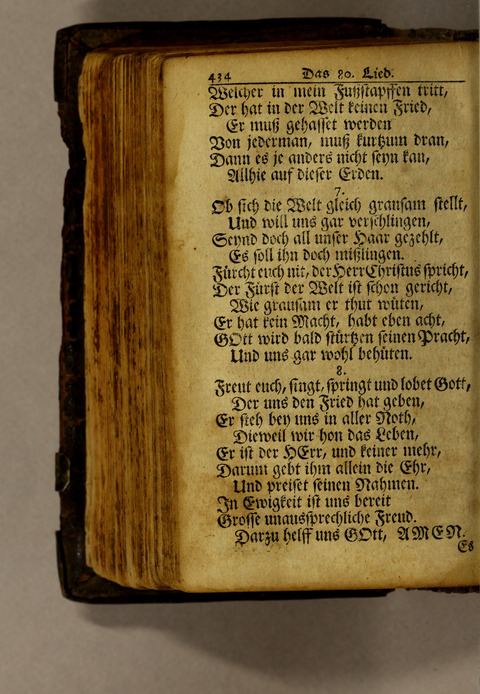 434 Das 80. Lied.
Welcher in mein Fußstapffen tritt,
Der hat in der Welt keinen Fried,
Er muß gehasset werden
Von jederman, muß kurtzum dran,
Dann es je anders nicht seyn kan,
Allhie auf dieser Erden.
7.
Ob sich die Welt gleich grausam stellt,
Und will uns gar verschlingen,
Seynd doch all unser Haar gezehlt,
Es soll ihn doch mißlingen.
Fürcht euch nit, der Herr Christus spricht,
Der Fürst der Welt ist schon gericht,
Wie grausam er thut wüten,
Er hat kein Macht, habt eben acht,
GOtt wird bald stürtzen seinen Pracht,
Und uns gar wohl behüten.
8.
Freut euch, singt, springt und lobet Gott,
Der uns den Fried hat geben,
Er steh bey uns in aller Noth,
Dieweil wir hon das Leben,
Er ist der HErr, und keiner mehr,
Darum gebt ihm allein die Ehr,
Und preiset seinen Nahmen.
In Ewigkeit ist uns bereit
Grosse unaussprechliche Freud.
Darzu helff uns GOtt, AMEN.
Es